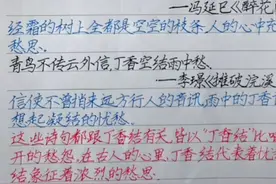 ——冯延巳《醉花
经霜的树上全都是空空的枝条人的心中充
愁思。
青鸟不传云外信,丁香空结雨中愁。
——李璟《摊破浣溪
信使不曾捎来远方行人的音讯,雨中的丁香
想起凝结的忧愁。
这些诗句都跟丁香结有关,皆以"丁香结"比喻
开的愁怨,在古人的心里,丁香结代表着忧
结象征着浓烈的愁思.